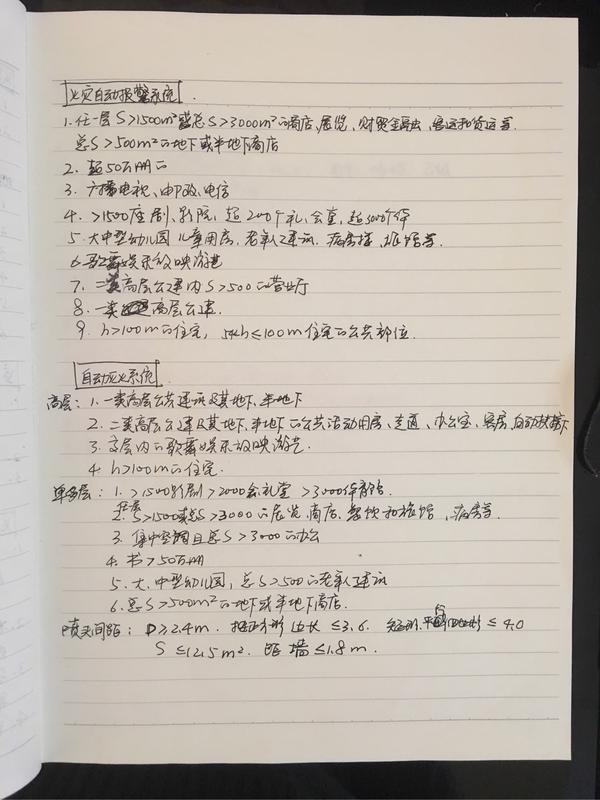 火灾自动报警系统.
1. 任一层S>1500m²或总S>3000m²的商店、展览、财贸金融、客运和货运等.
总S>500m²的地下或半地下商店
2. 超50万册的
3. 广播电视、邮政、电信
4. >1500座剧、影院, 超2000个礼、会堂, 超3000个体
5. 大中型幼儿园 儿童用房, 老年人建筑, 病房楼, 旅馆等.
6. 歌舞娱乐放映游艺
7. 二类高层公建内S>500的营业厅
8. 一类高层公建.
9. h>100m的住宅, 54<h≤100m住宅的公共部位.
自动灭火系统.
高层: 1. 一类高层公共建筑及其地下、半地下
2. 二类高层公建及其地下、半地下的公共活动用房、走道、办公室、客房、自动扶梯下
3. 高层内的歌舞娱乐放映游艺.
4. h>100m的住宅.
单多层: 1. >1500影剧 >2000会礼堂 >3000体育馆.
任层
2. S>1500或总S>3000的展览、商店、餐饮和旅馆、病房等
3. 集中空调且总S>3000的办公
4. 书>50万册
5. 大、中型幼儿园, 总S>500的老年人建筑
6. 总S>500m²的地下或半地下商店.
喷头间距: D≥2.4m. 正方形 边长≤3.6. 矩形. 平行四边形≤4.0
S≤12.5m². 距墙≤1.8m.